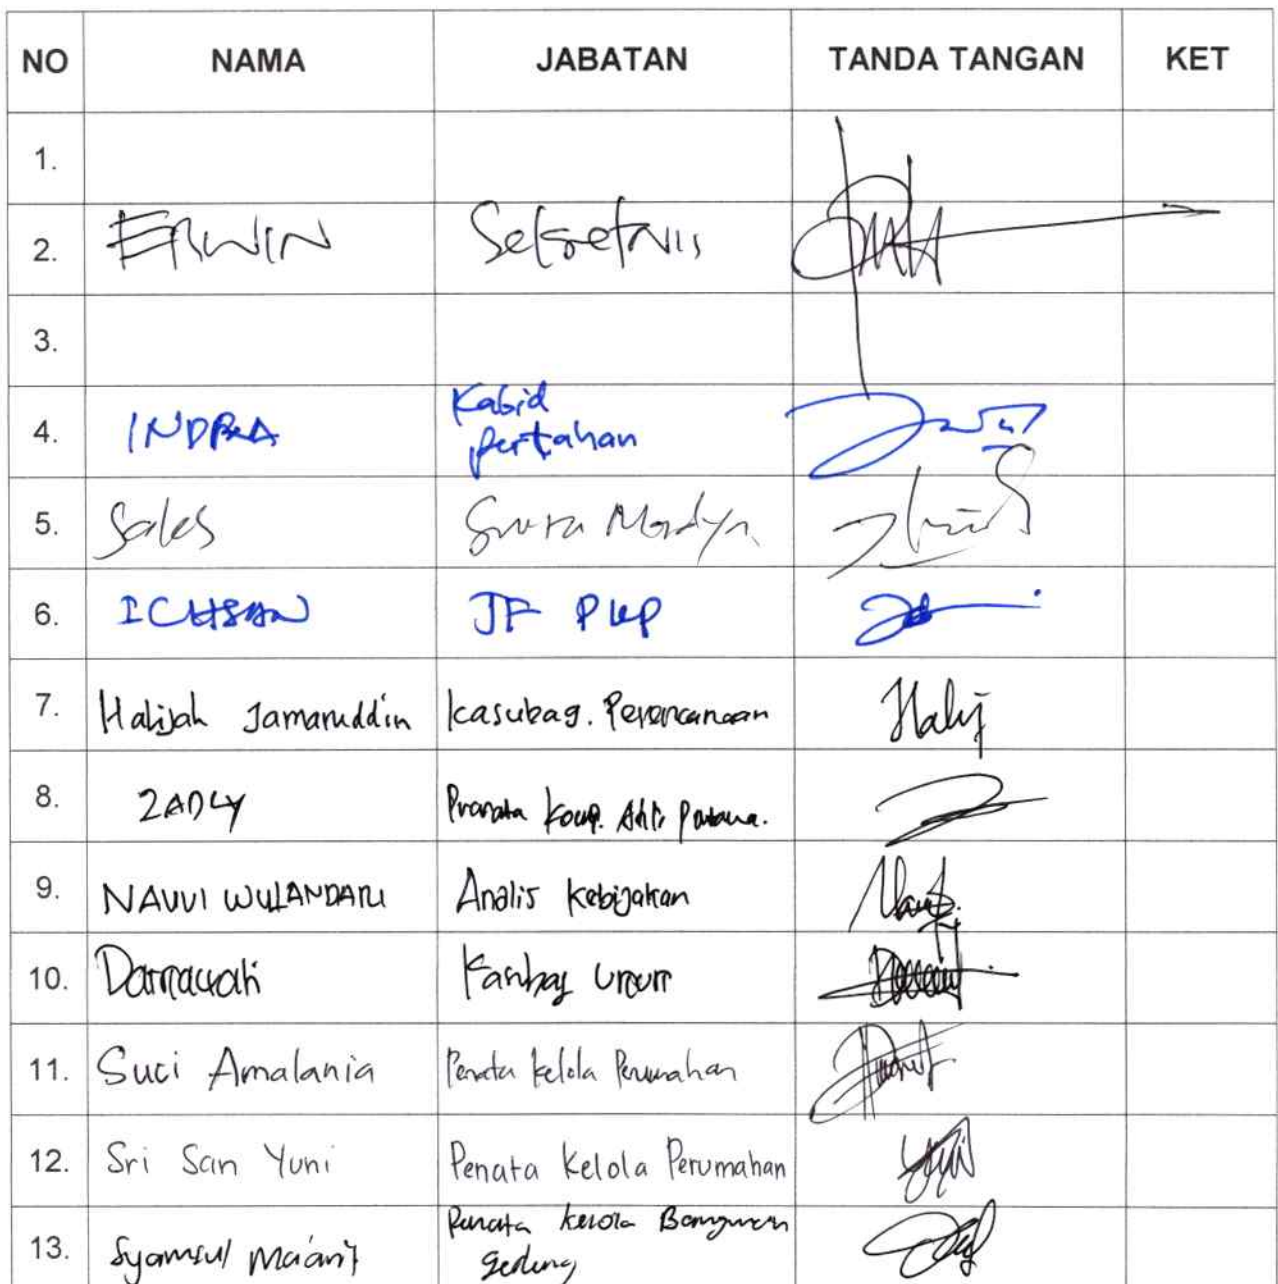 NO NAMA JABATAN TANDA TANGAN KET
1.
2. ERWIN Sekretaris
3.
4. INDRA Kabid
pertahan
5. Madya
6. ICHSAN JF PKP
7. Halijah Jamaruddin Kasubag. Perencanaan
8. ZADLY Pranata Komp. Ahli Pratama.
9. NAVVI WULANDARI Analis Kebijakan
10. Darmawati Kasubag Umum
11. Suci Amalania Penata Kelola Perumahan
12. Sri San Yuni Penata Kelola Perumahan
13. Syamsul Ma'arif Penata Kelola Bangunan
Gedung